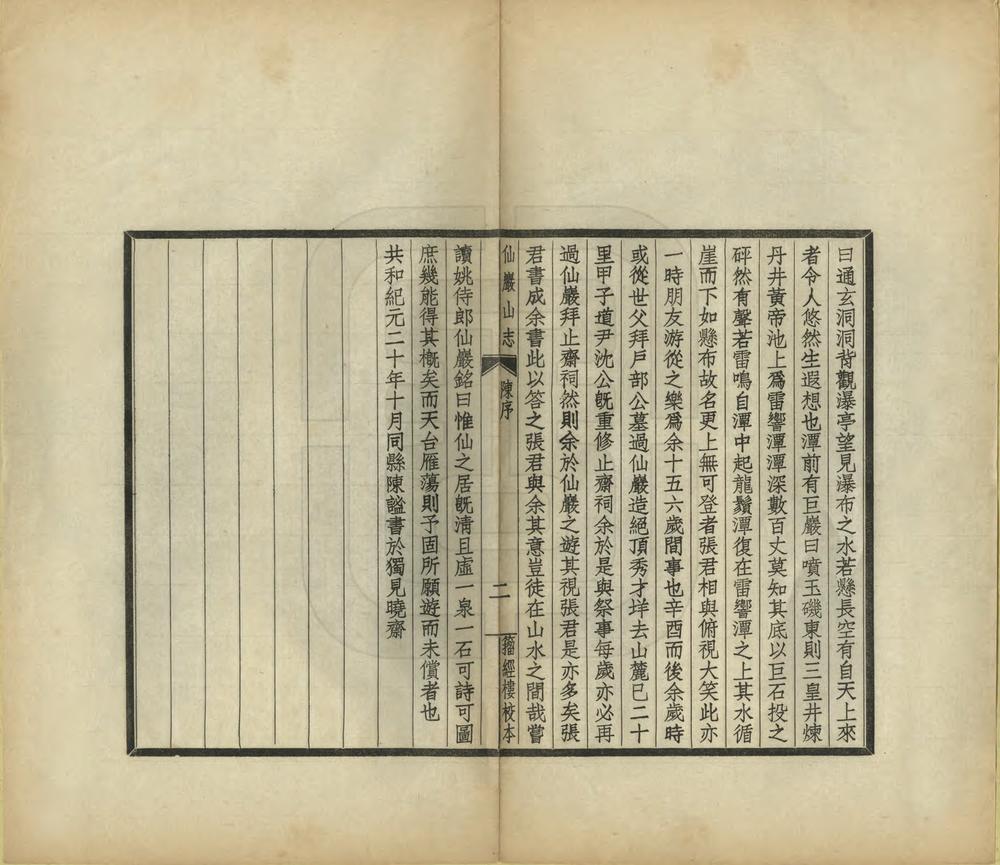 曰通玄洞洞背觀瀑亭望見瀑布之水若懸長空有自天上來
者令人悠然生遐想也潭前有巨巖曰噴玉磯東則三皇井煉
丹井黃帝池上爲雷響潭潭深數百丈莫知其底以巨石投之
砰然有聲若雷鳴自潭中起龍鬚潭復在雷響潭之上其水循
崖而下如懸布故名更上無可登者張君相與俯視大笑此亦
一時朋友游從之樂爲余十五六歲間事也辛酉而後余歲時
或從世父拜戶部公墓過仙巖造絕頂秀才垟去山麓已二十
里甲子道尹沈公旣重修止齋祠余於是與祭事每歲亦必再
過仙巖拜止齋祠然則余於仙巖之遊其視張君是亦多矣張
君書成余書此以答之張君與余其意豈徒在山水之間哉嘗
仙巖山志
陳序
二
籀經樓校本
讀姚侍郎仙巖銘曰惟仙之居旣淸且虛一泉一石可詩可圖
庶幾能得其槪矣而天台雁蕩則予固所願遊而未償者也
共和紀元二十年十月同縣陳謐書於獨見曉齋